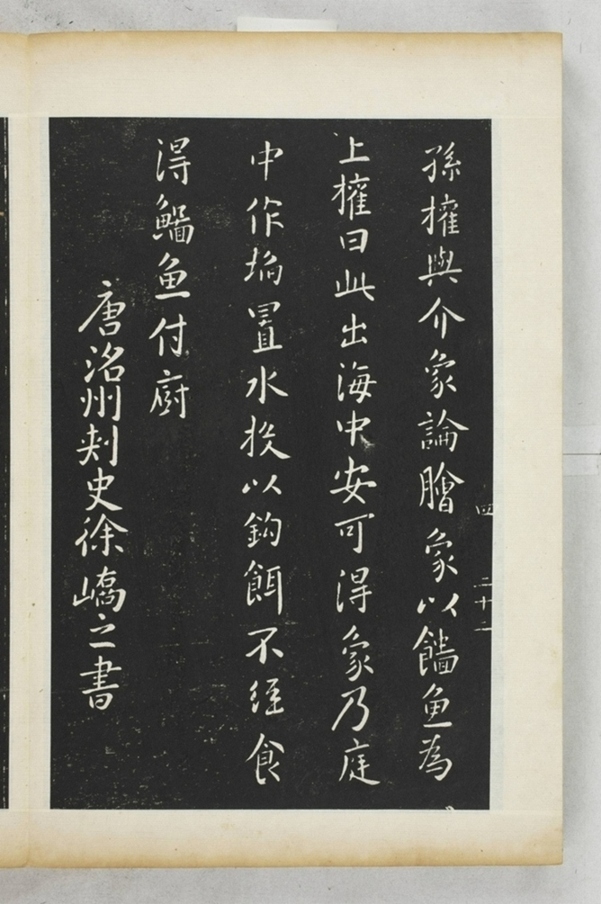 孫權與介象論膾象以鯔魚為
上權曰此出海中安可得象乃庭
中作埳置水投以鈎餌不經食
得鯔魚付廚
唐洺州刾史徐嶠之書
四 二十二